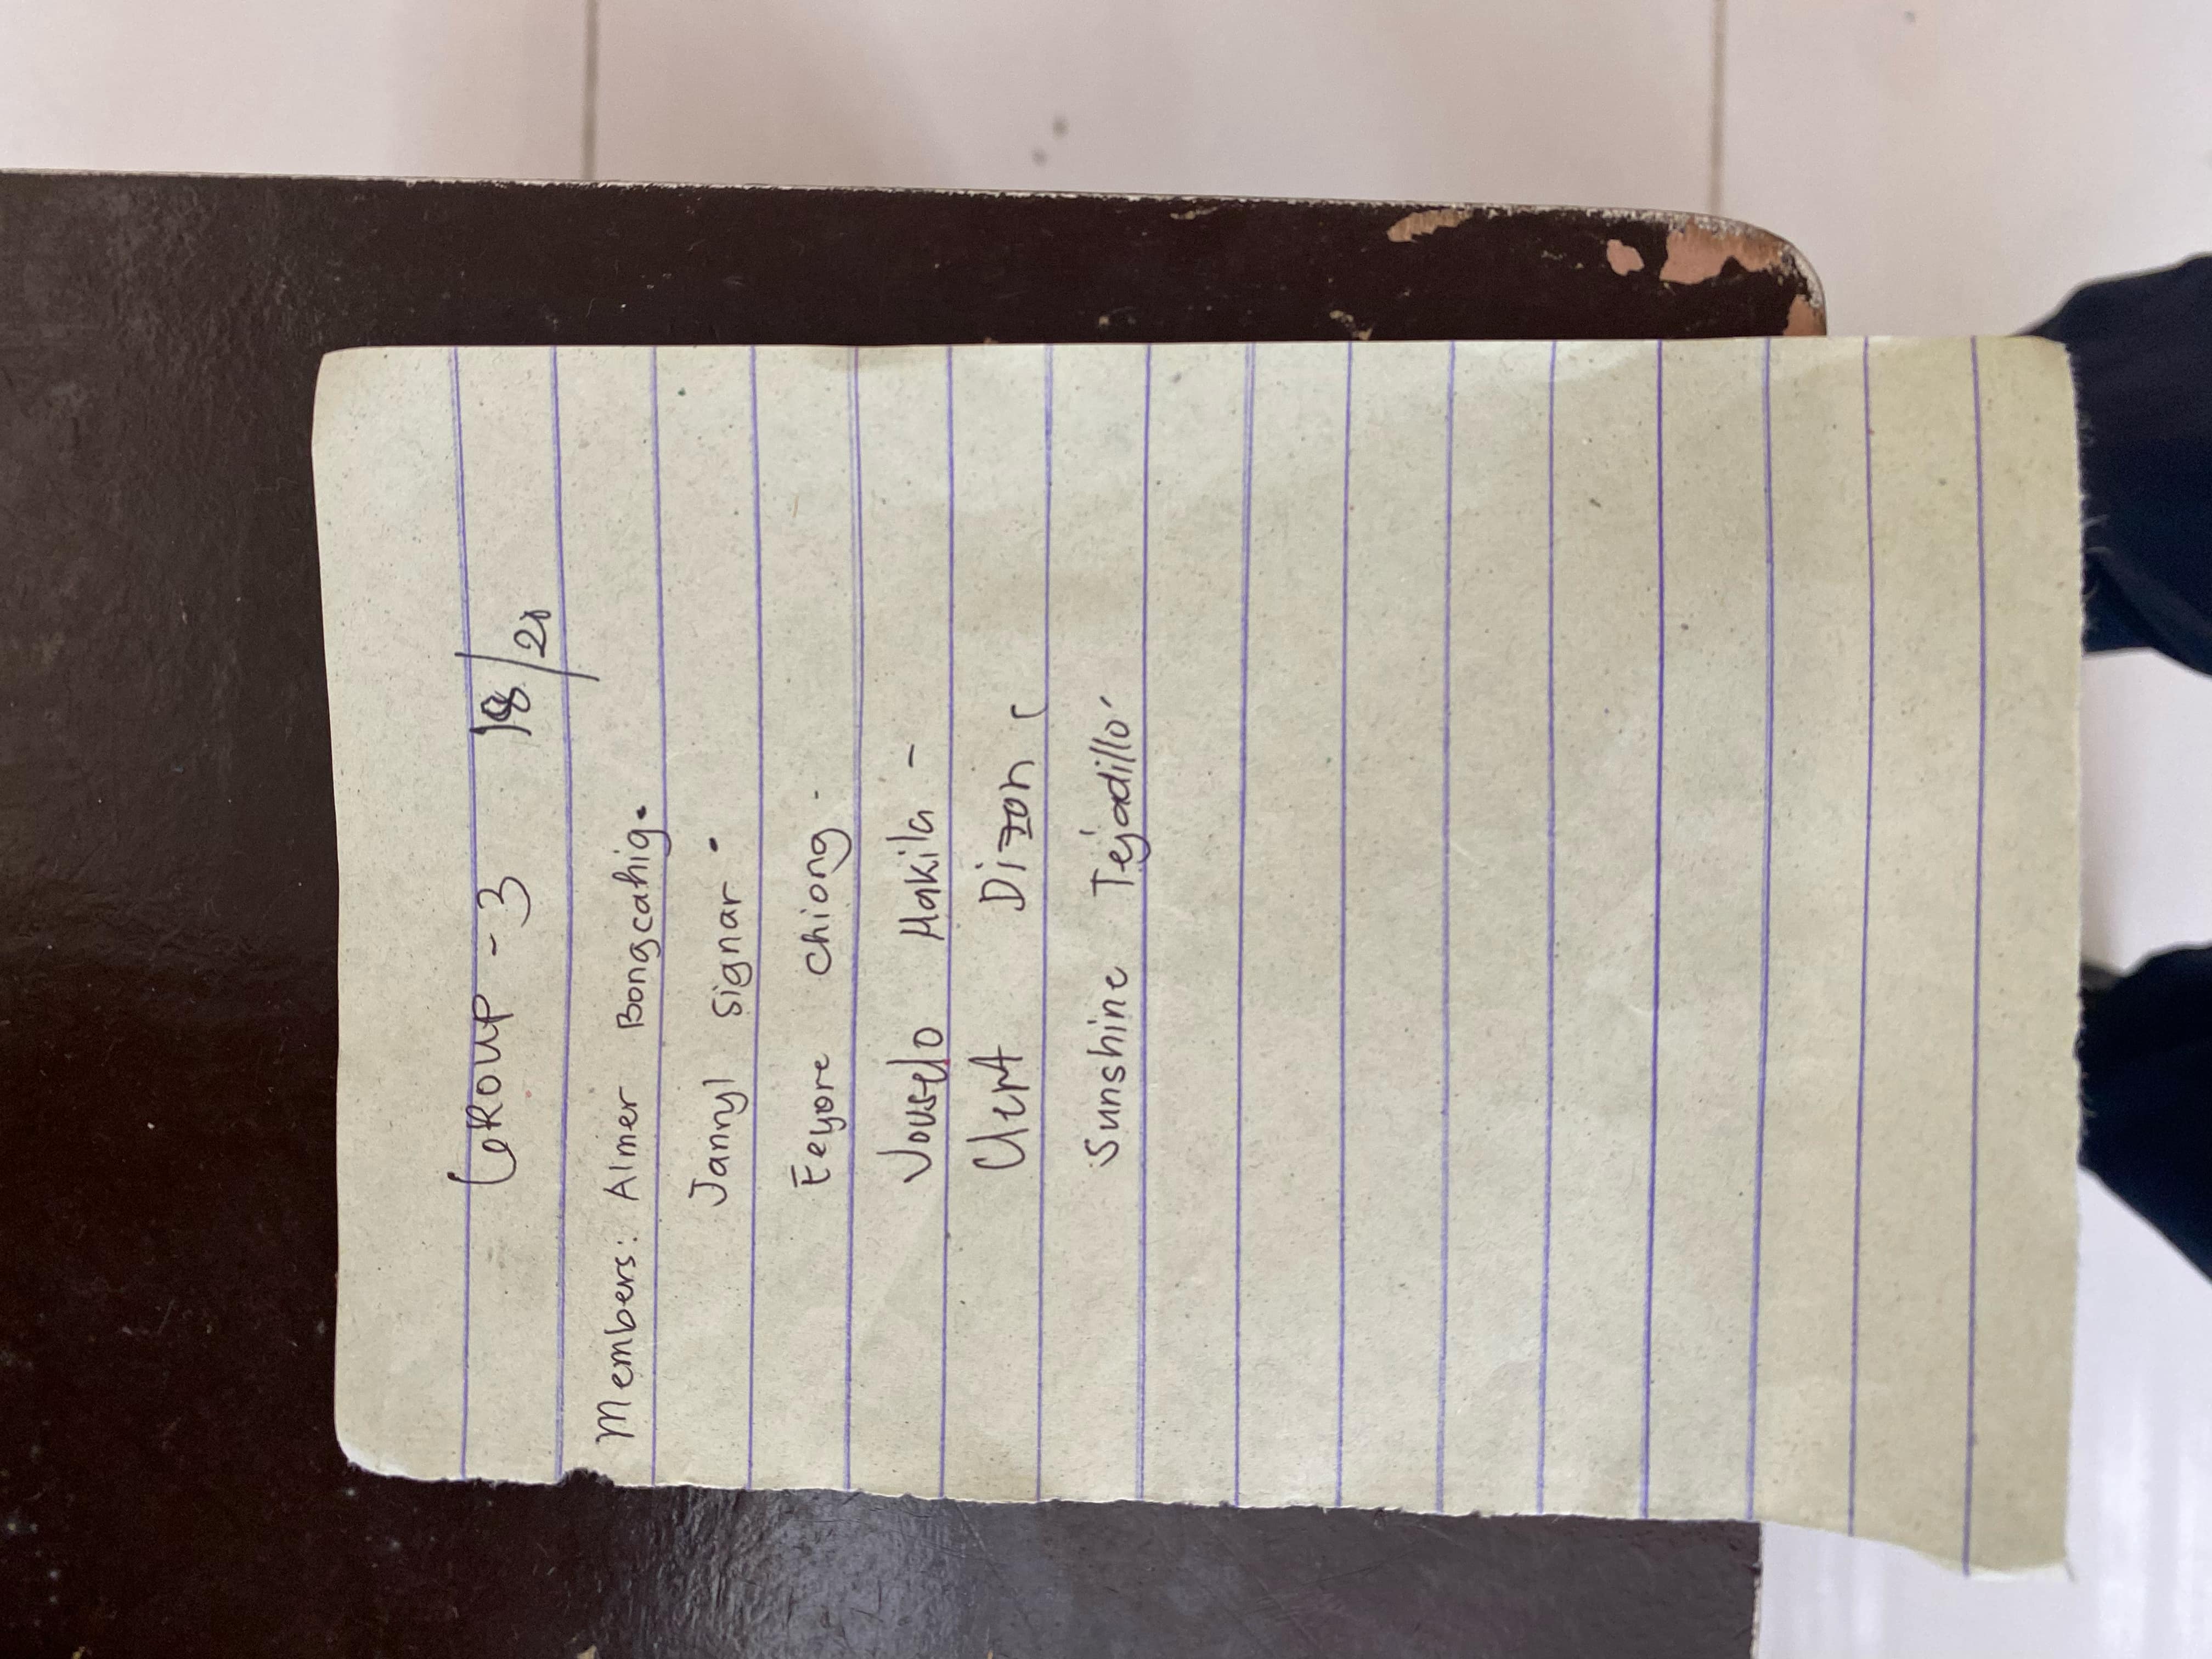 GROUP - 3 18/20
Members: Almer Bongcahig.
Jannyl Signar.
Eeyore Chiong.
Makila -
Clent Dizon
Sunshine Tejadillo